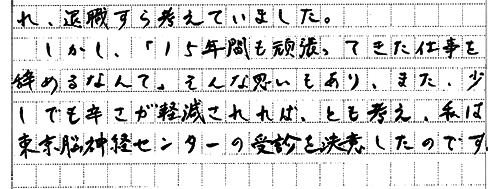 れ、退職すら考えていました。
しかし、「15年間も頑張ってきた仕事を
辞めるなんて」そんな思いもあり、また、少
しでも辛さが軽減されれば、とも考え、私は
東京脳神経センターの受診を決意したのです